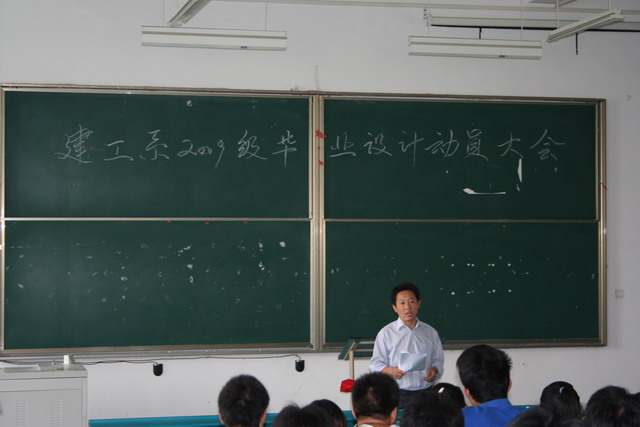 建工系2009级毕业设计动员大会